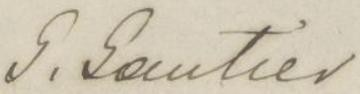 G. Gautier